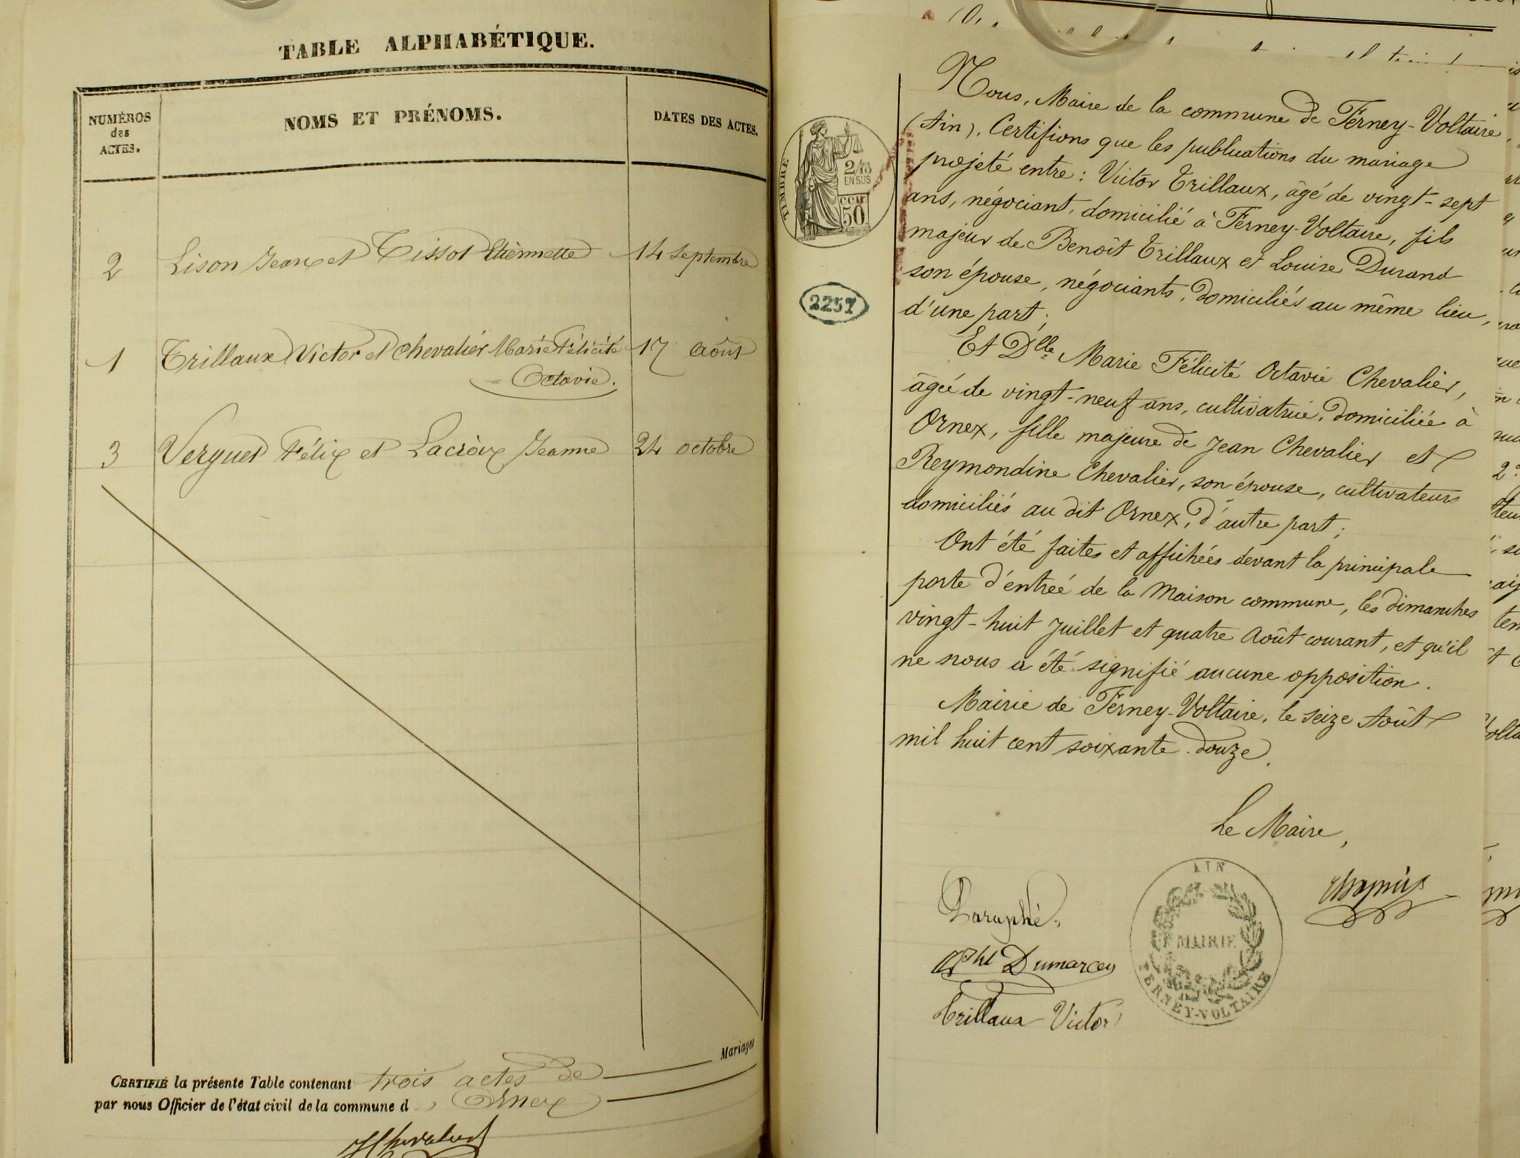 TABLE ALPHABÉTIQUE.
NUMÉROS
des
ACTES.
NOMS ET PRÉNOMS.
DATES DES ACTES.
2 Lison Jean et Tissot Etiennette 14 Septembre
1 Trillaux Victor et Chevalier Marie Félicité 17 Août
Octavie.
3 Verguet Félix et Lacroix Jeanne 24 octobre
Mariages
CERTIFIÉ la présente Table contenant trois actes de
par nous Officier de l'état civil de la commune d Ornex
TIMBRE
2/10
EN SUS
50
2257
Nous, Maire de la commune de Ferney-Voltaire,
(Ain), Certifions que les publications du mariage
projeté entre : Victor Trillaux, âgé de vingt-sept
ans, négociant, domicilié à Ferney-Voltaire, fils
majeur de Benoît Trillaux et Louise Durand
son épouse, négociants, domiciliés au même lieu,
d'une part ;
Et Dlle Marie Félicité Octavie Chevalier,
âgée de vingt-neuf ans, cultivatrice, domiciliée à
Ornex, fille majeure de Jean Chevalier et
Reymondine Chevalier, son épouse, cultivateurs
domiciliés au dit Ornex, d'autre part ;
Ont été faites et affichées devant la principale
porte d'entrée de la Maison commune, les dimanches
vingt-huit Juillet et quatre Août courant, et qu'il
ne nous a été signifié aucune opposition.
Mairie de Ferney-Voltaire, le seize Août
mil huit cent soixante-douze.
Le Maire,
Paraphé.
Dumarcey
Trillaux Victor
AIN
MAIRIE
FERNEY-VOLTAIRE